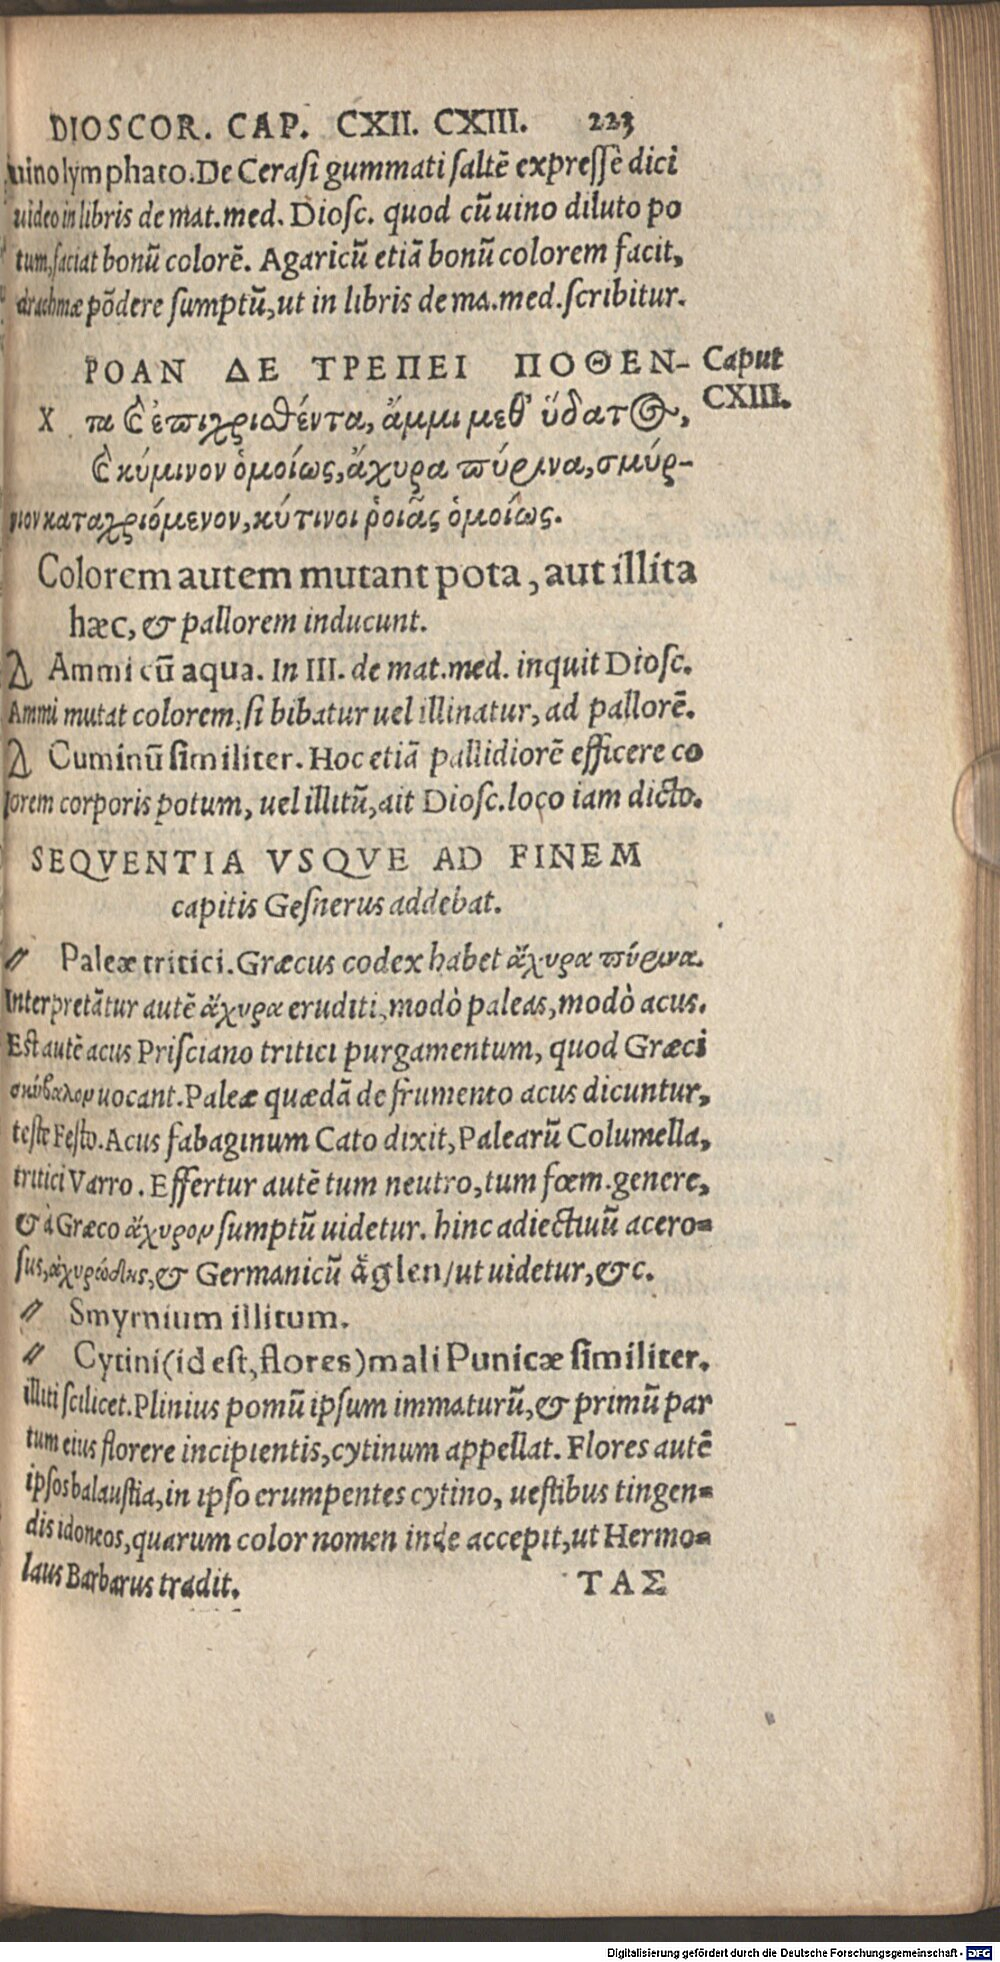 DIOSCOR. CAP. CXII. CXIII. 223
uino lymphato. De Cerasi gummati saltẽ expressè dici
uideo in libris de mat. med. Diosc. quod cũ uino diluto po
tum, faciat bonũ colorẽ. Agaricũ etiã bonũ colorem facit,
drachmæ põdere sumptũ, ut in libris de ma. med. scribitur.
ΧΡΟΑΝ ΔΕ ΤΡΕΠΕΙ ΠΟΘΕΝ-
Caput
CXIII.
τα καὶ ἐπιχρισθέντα, ἄμμι μεθ' ὕδατος,
καὶ κύμινον ὁμοίως, ἄχυρα πύρινα, σμύρ-
νιον καταχριόμενον, κύτινοι ῥοιᾶς ὁμοίως.
Colorem autem mutant pota, aut illita
hæc, & pallorem inducunt.
Ammi cũ aqua. In III. de mat. med. inquit Diosc.
Ammi mutat colorem, si bibatur uel illinatur, ad pallorẽ.
Cuminũ similiter. Hoc etiã pallidiorẽ efficere co
lorem corporis potum, uel illitũ, ait Diosc. loco iam dicto.
SEQVENTIA VSQVE AD FINEM
capitis Gesnerus addebat.
〃 Paleæ tritici. Græcus codex habet ἄχυρα πύρινα.
Interpretãtur autẽ ἄχυρα eruditi, modò paleas, modò acus.
Est autẽ acus Prisciano tritici purgamentum, quod Græci
σκύβαλον uocant. Paleæ quædã de frumento acus dicuntur,
teste Festo. Acus fabaginum Cato dixit, Palearũ Columella,
tritici Varro. Effertur autẽ tum neutro, tum fœm. genere,
& à Græco ἄχυρον sumptũ uidetur. hinc adiectiuũ acero=
sus, ἀχυρώδης, & Germanicũ åglen/ ut uidetur, &c.
〃 Smyrnium illitum.
〃 Cytini (id est, flores) mali Punicæ similiter.
illiti scilicet. Plinius pomũ ipsum immaturũ, & primũ par
tum eius florere incipientis, cytinum appellat. Flores autẽ
ipsos balaustia, in ipso erumpentes cytino, uestibus tingen=
dis idoneos, quarum color nomen inde accepit, ut Hermo=
laus Barbarus tradit.
ΤΑΣ
Digitalisierung gefördert durch die Deutsche Forschungsgemeinschaft - DFG